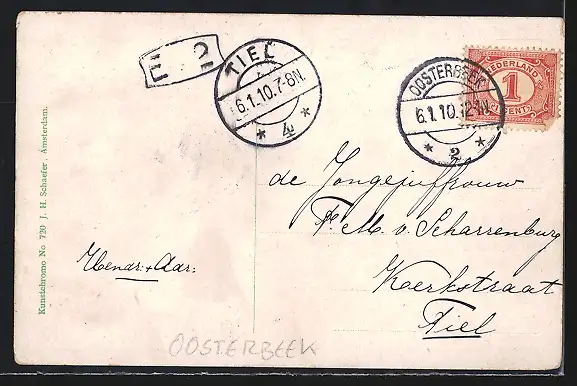 E 2
TIEL
6.1.10.7-8N.
4
OOSTERBEEK
6.1.10.12-1N.
2
NEDERLAND
1
CENT
de Jongejuffrouw
F. M. v. Scharrenburg
Kerkstraat
Tiel
Hendr: + Adr:
OOSTERBEEK
Kunstchromo No 720 J. H. Schaefer, Amsterdam.